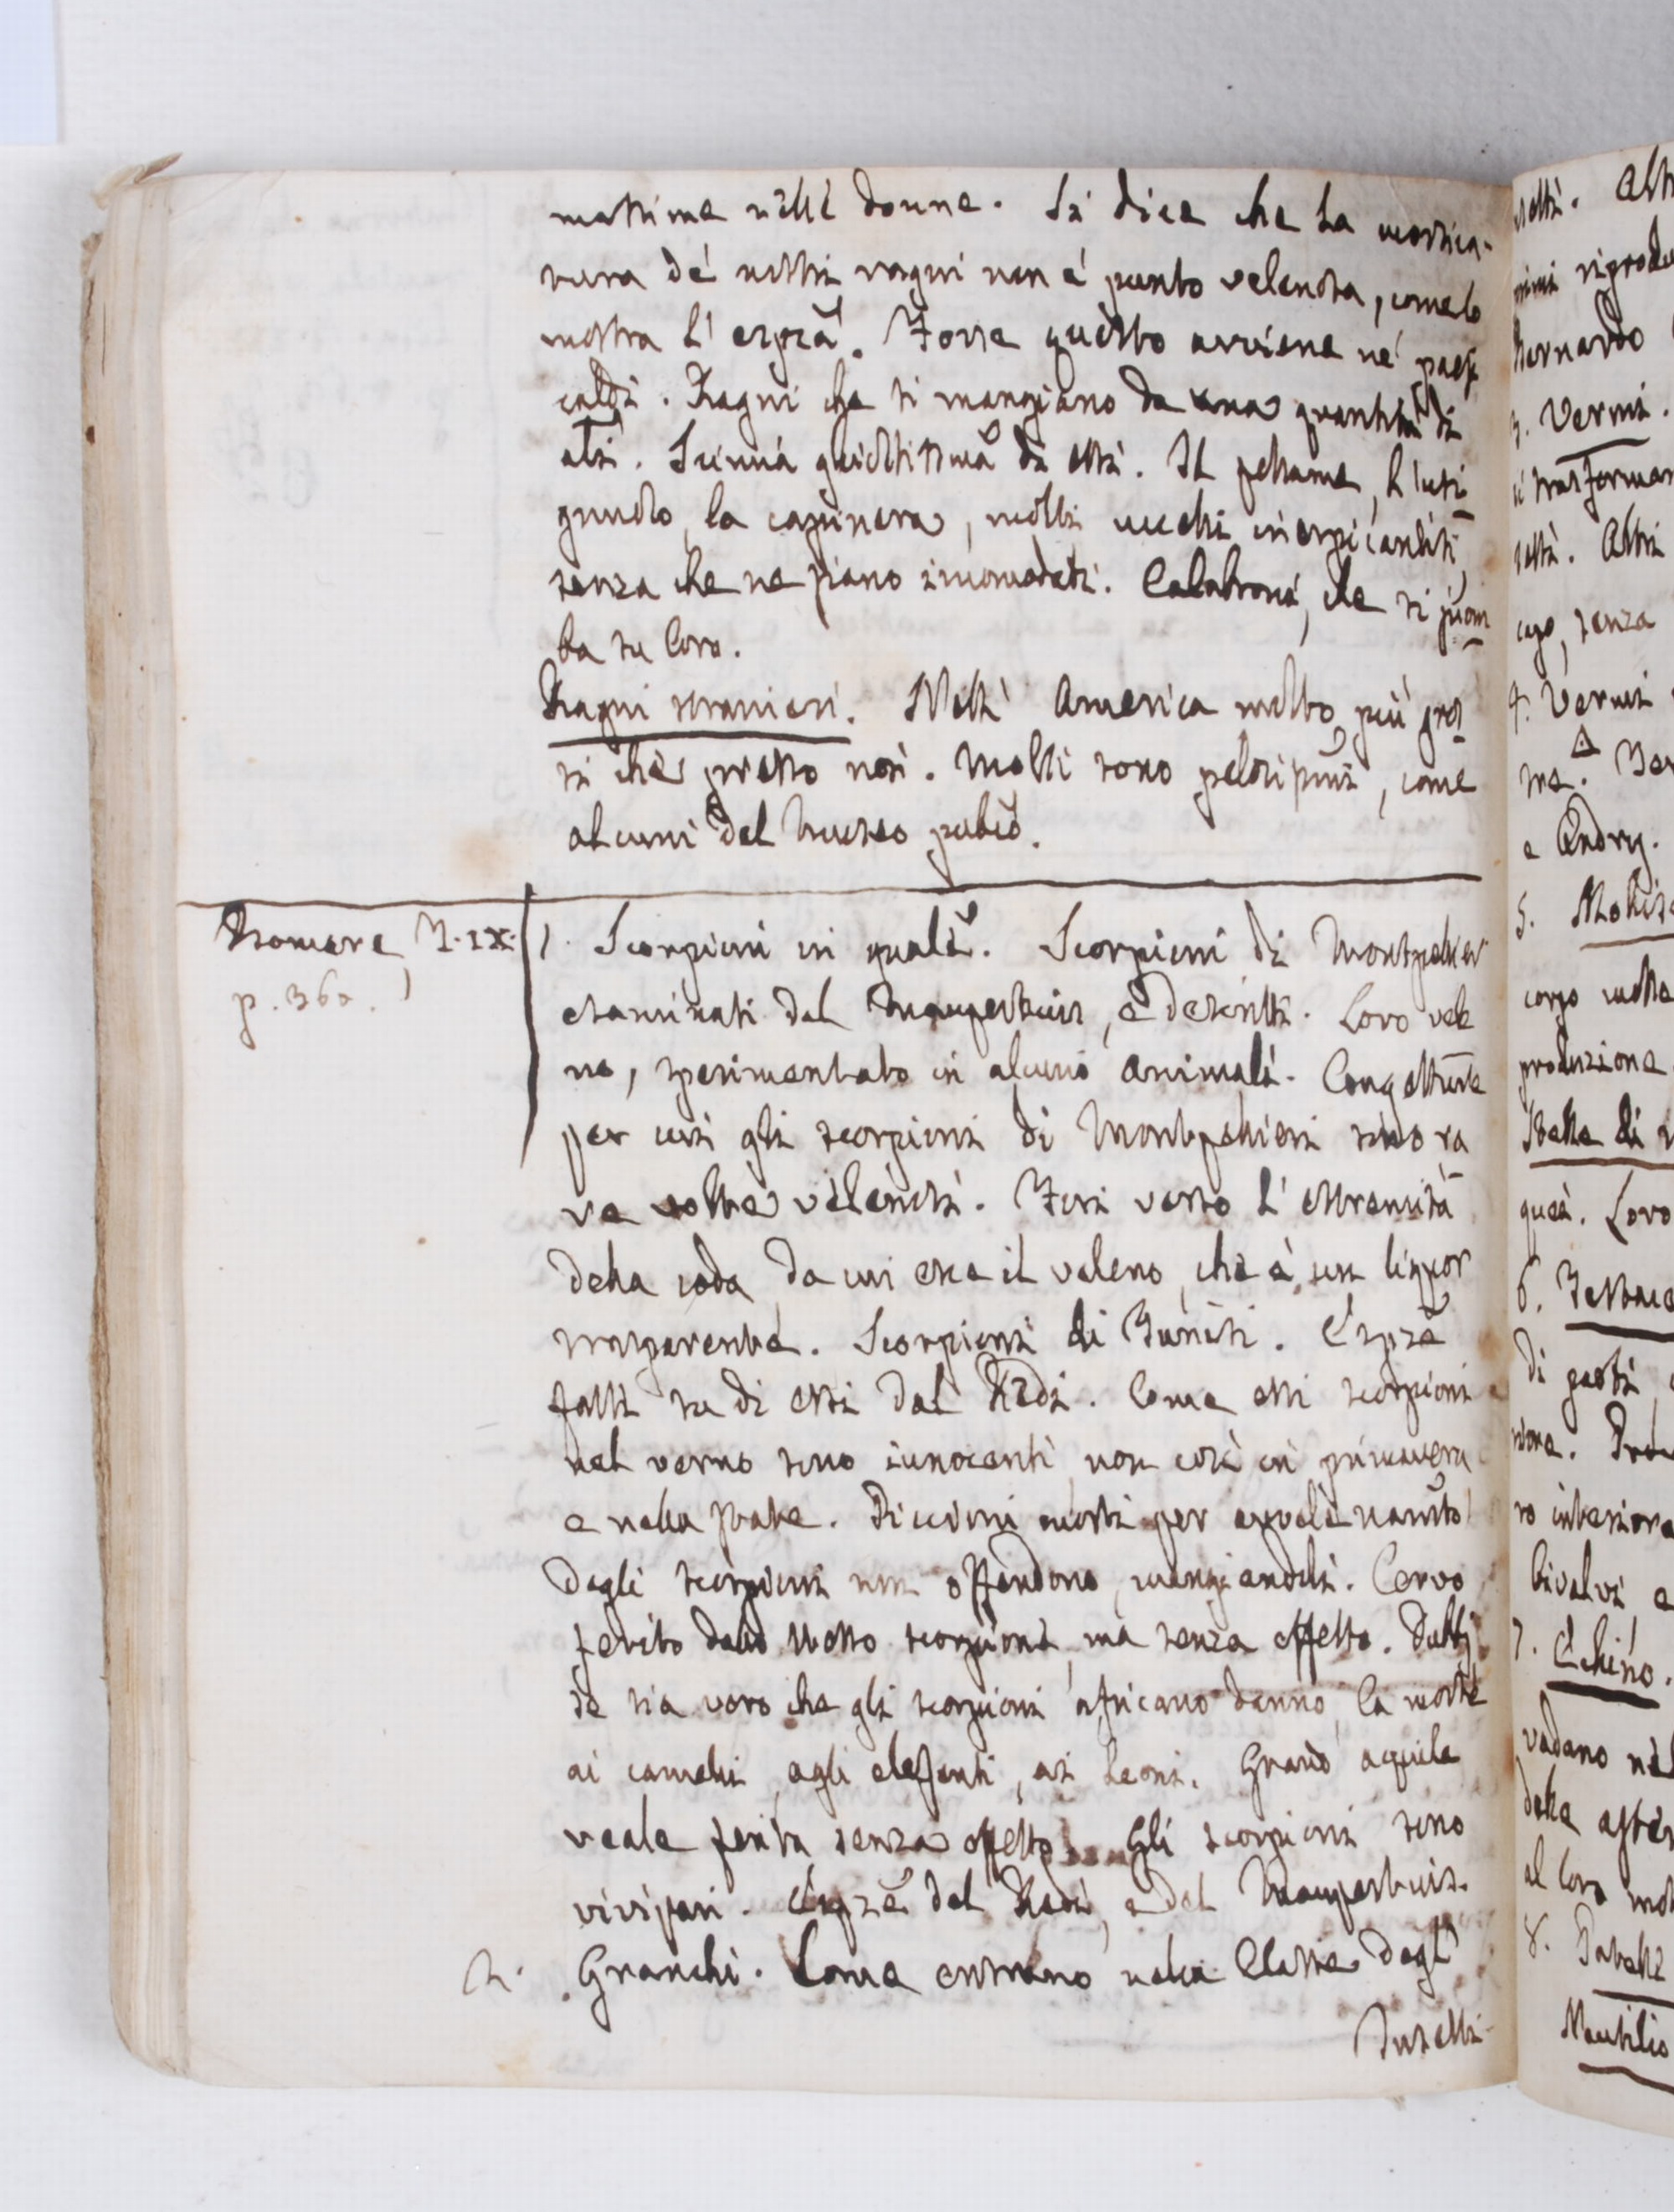 massime nelle donne. Si dice che la morsica-
tura de' nostri ragni non è punto velenosa, come lo
mostra l'esprza. Forse questo avviene ne' paesi
caldi. Ragni che si mangiano da una quantità di
Il pettame, l'usi
gnuolo, la capinera, molti uccelli
senza che ne siano incomodati. Calabroni, che si piom
ba su loro.
Ragni stranieri. Nell' America molto più gros
si che presso noi. Molti sono pelosissimi, come
alcuni del Museo pubco.
Bomare, T. IX.
p. 360.
1. Scorpioni in gnale. Scorpioni di Montpellier
esaminati dal Maupertuis, e descritti. Loro vele
no, sperimentato in alcuno animali. Congetture
per cui gli scorpioni di Montpellieri sieno ra
re volte velenosi. Fori verso l'estremità
della coda da cui esce il veleno, che è un liquor
trasparente. Scorpioni di Tunisi. Esprze
fatte su di essi dal Redi. Come essi scorpioni
nel verno sono innocenti non così in primavera
e nella state. Piccioni morti per avvelenamto
dagli scorpioni non offendono, mangiandoli. Cervo
ferito dallo stesso scorpione, ma senza effetto. Dubbj
se sia vero che gli scorpioni africano danno la morte
ai camelli, agli eleffanti, ai leoni. Grand' aquila
reale ferita senza effetto. Gli scorpioni sono
vivipari. Esprze del Redi, e del Maupertuis.
2. Granchi. Come entrano nella Classe degl'
Insetti.
altri
rimi riprodu
Bernardo
3. Vermi.
si trasforman
setti. Altri
capo, senza
4. Vermi
me. Ter
e Andry.
5.
corpo molle
produzione
Stelle di
quea. Loro
6. Testace
di gusti,
Prod
ro interiora
bivalvi e
7. Echino.
vadano nel
delle aster
al loro mo
8. Patelle
Nautilio